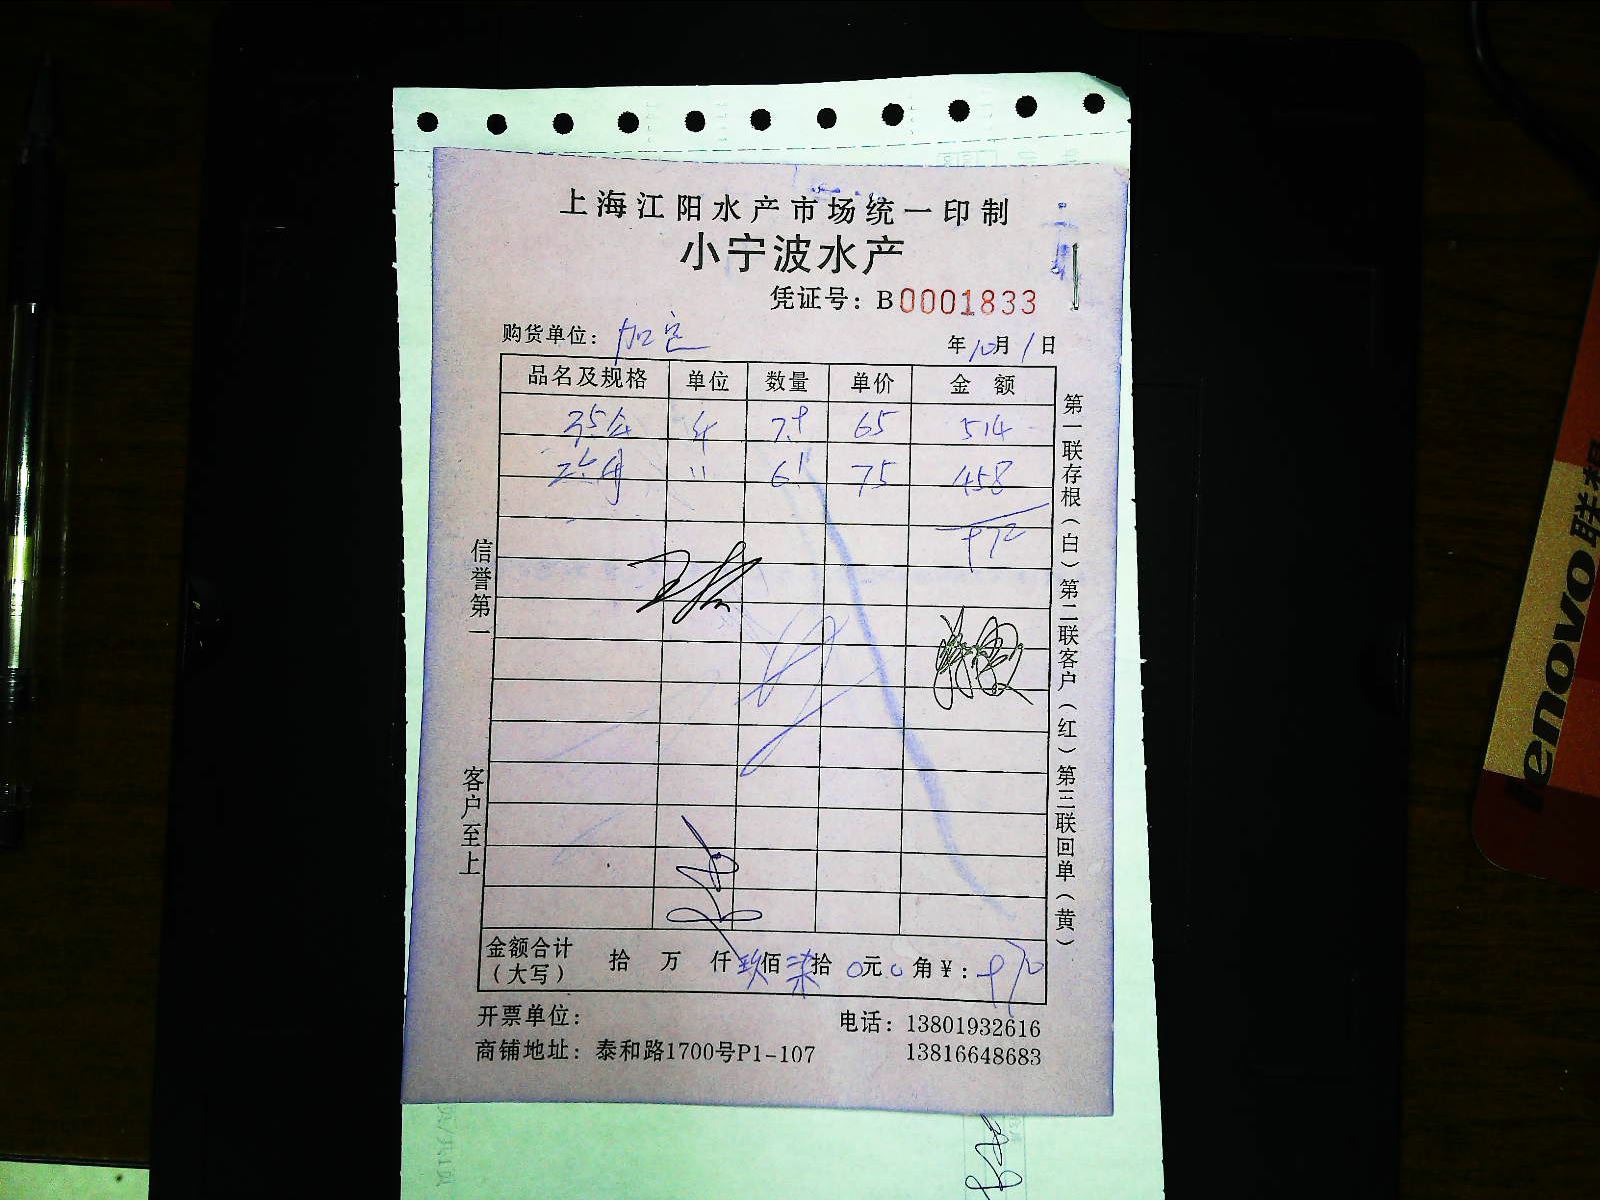 上海江阳水产市场统一印制
小宁波水产
凭证号：B0001833
购货单位：加定
年10月1日
品名及规格 单位 数量 单价 金额
斤 7.9 65 514
〃 6.1 75 458
972
信誉第一
客户至上
第一联存根（白）第二联客户（红）第三联回单（黄）
金额合计（大写） 拾 万 仟玖佰柒拾0元0角¥：970
开票单位：
电话：13801932616
商铺地址：泰和路1700号P1-107
13816648683
lenovo联想